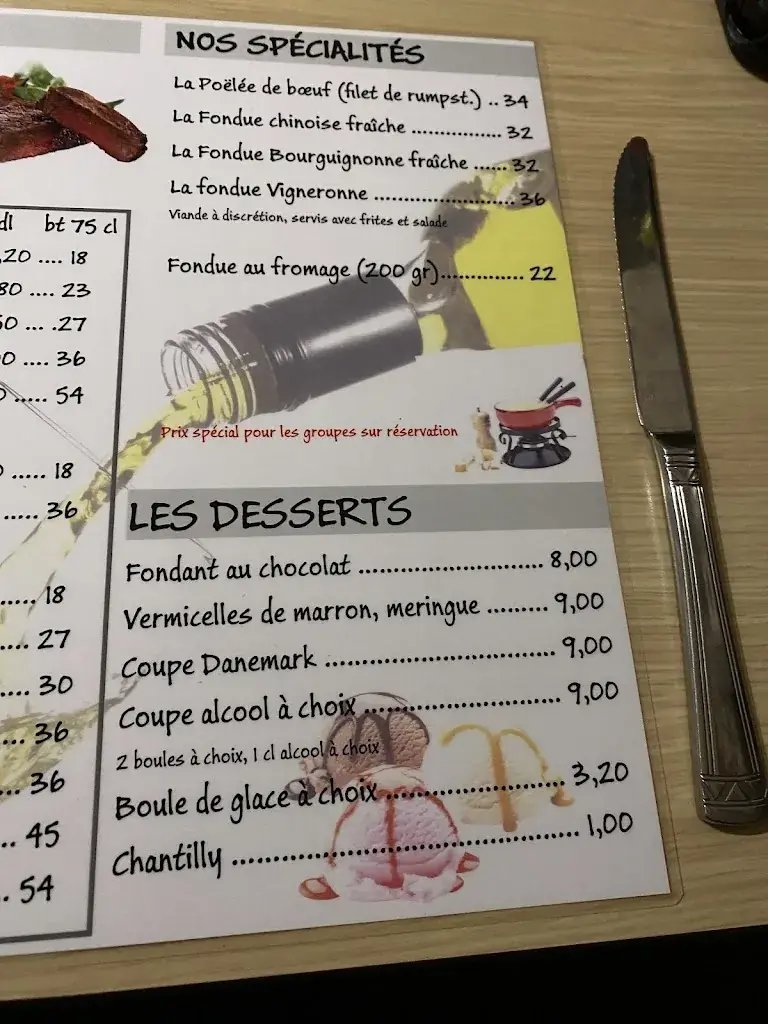 dl bt 75 cl
,20 .... 18
80 .... 23
50 ... .27
0 .... 36
..... 54
..... 18
..... 36
..... 18
.... 27
.... 30
... 36
... 36
.. 45
. 54
NOS SPÉCIALITÉS
La Poëlée de bœuf (filet de rumpst.) .. 34
La Fondue chinoise fraîche ................ 32
La Fondue Bourguignonne fraîche ...... 32
La fondue Vigneronne ......................... 36
Viande à discrétion, servis avec frites et salade
Fondue au fromage (200 gr).............. 22
Prix spécial pour les groupes sur réservation
LES DESSERTS
Fondant au chocolat ............................ 8,00
Vermicelles de marron, meringue ......... 9,00
Coupe Danemark .................................. 9,00
Coupe alcool à choix ............................. 9,00
2 boules à choix, 1 cl alcool à choix
Boule de glace à choix .......................... 3,20
Chantilly .................................................. 1,00